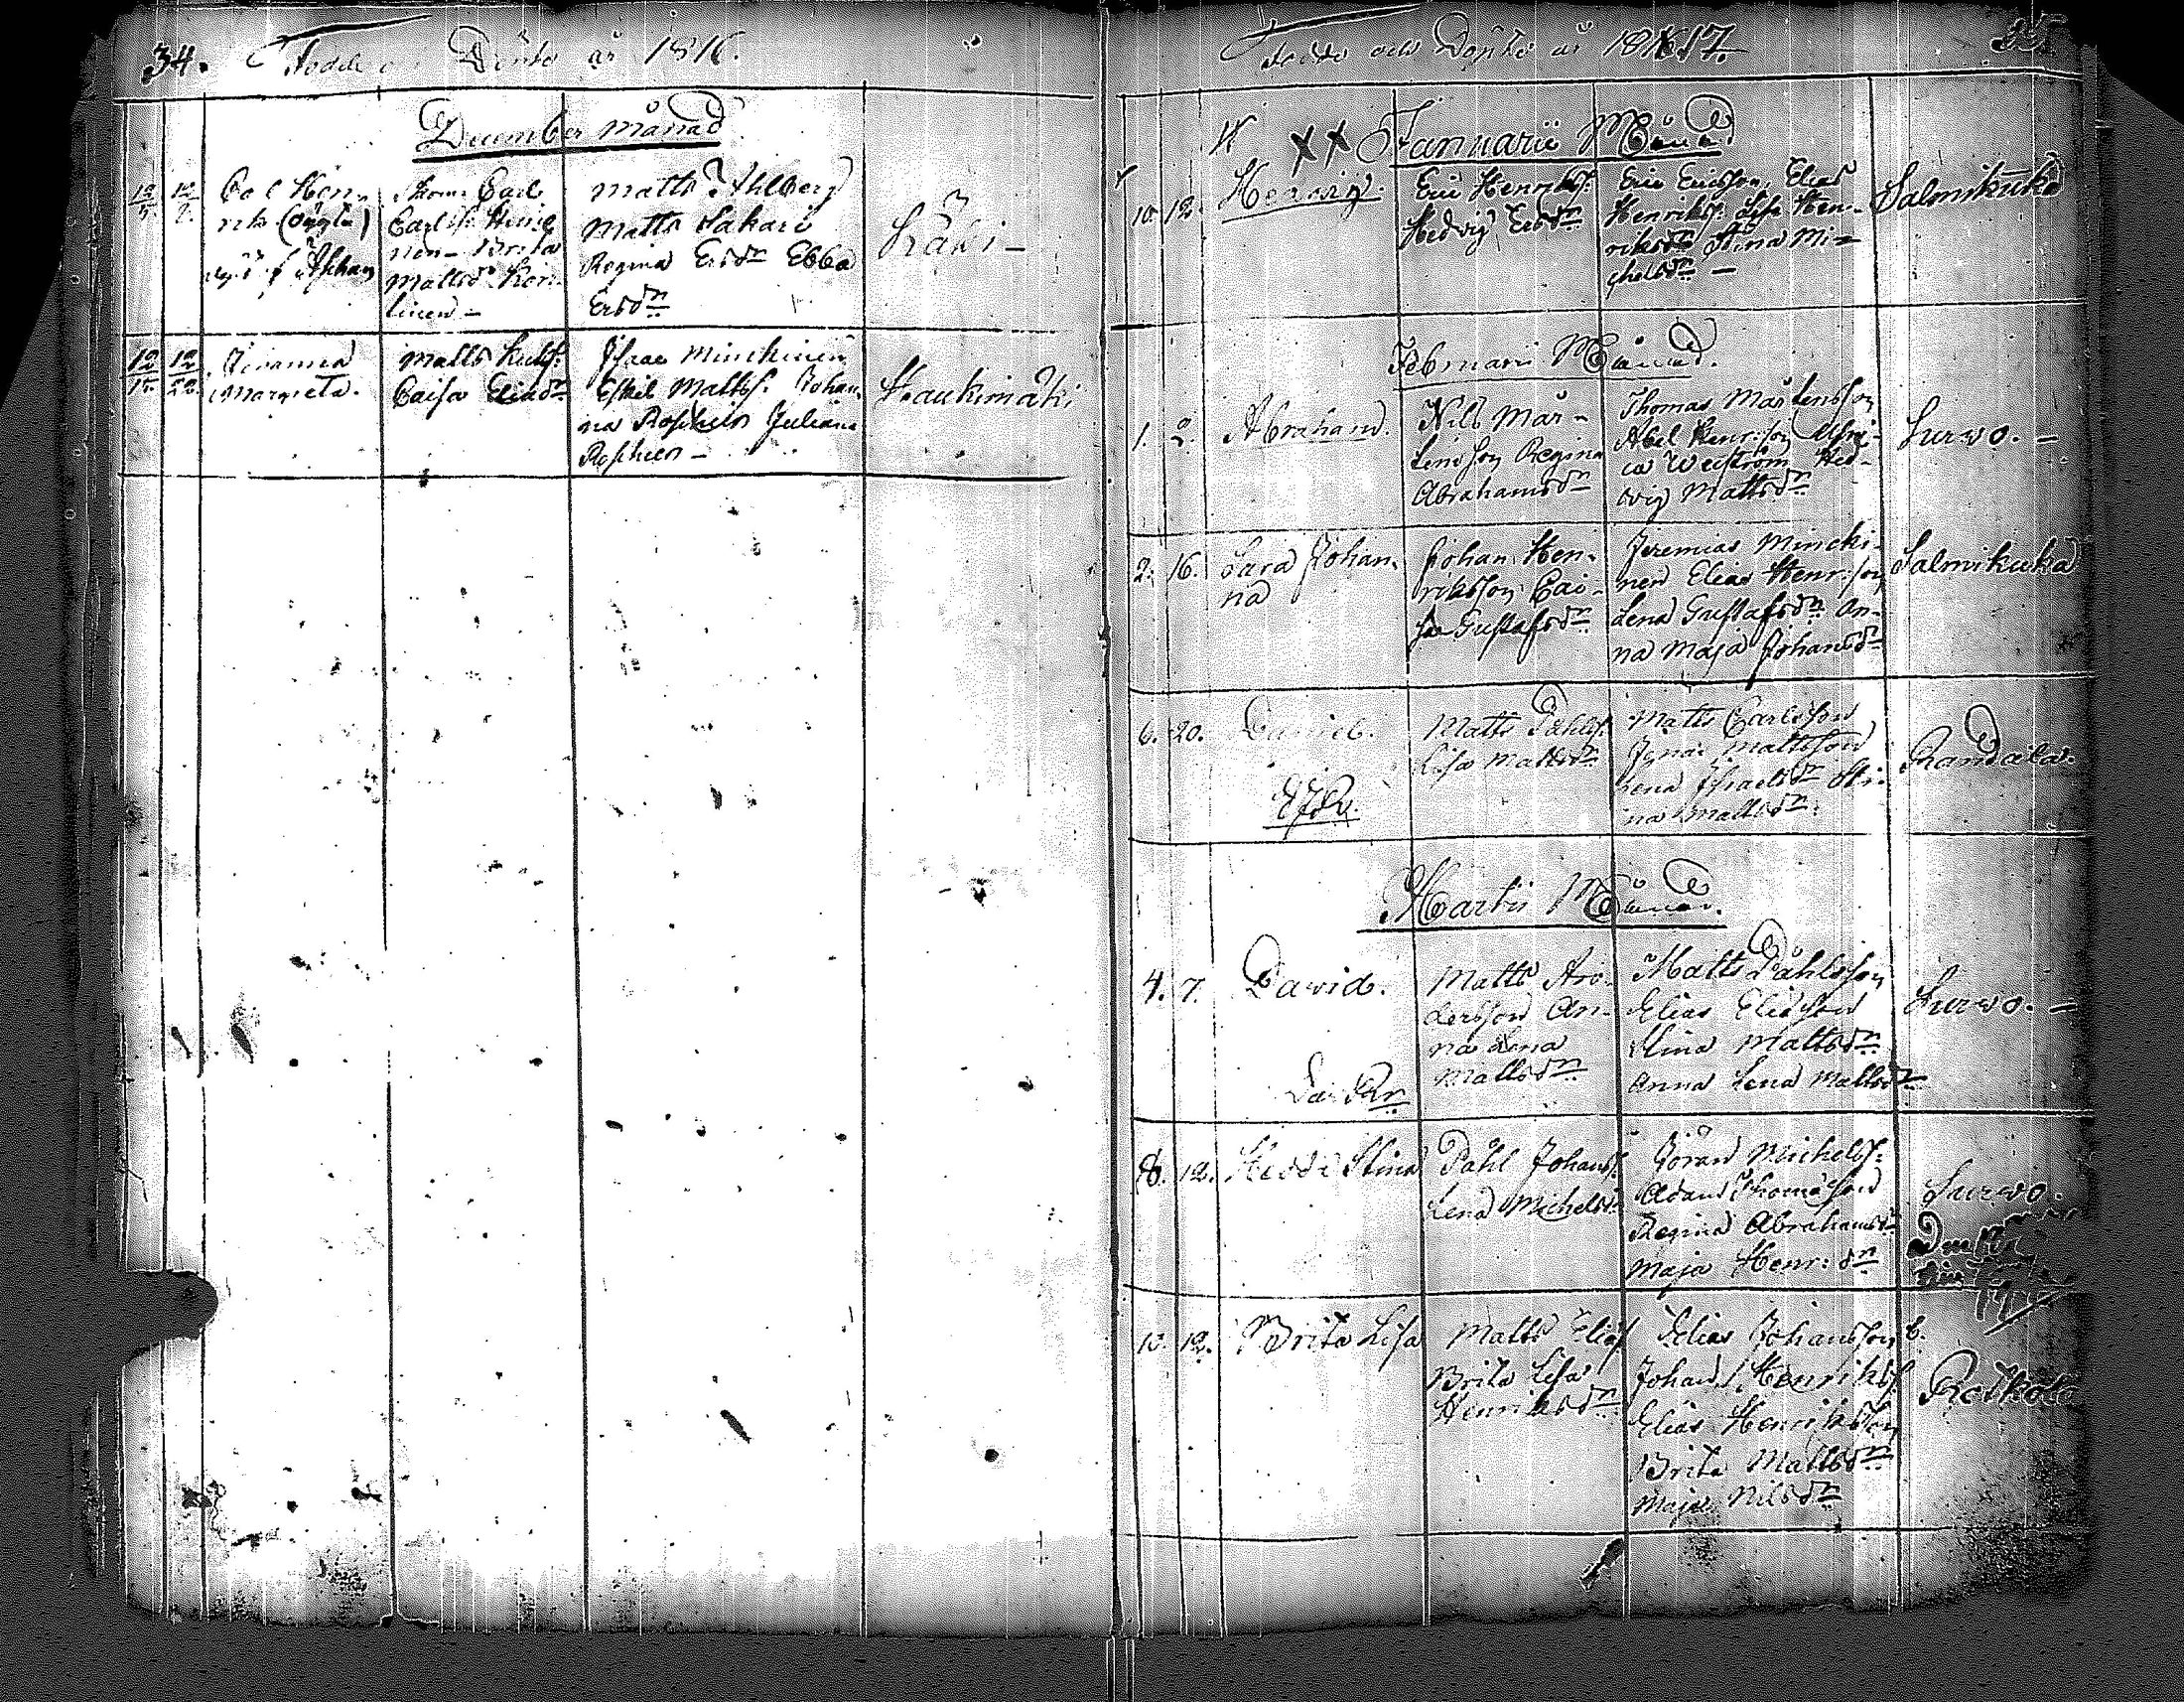 34. Födde och Döpte år 1816.
December månad
12/5. 12/7. Carl Hen-
rik (oägta)
Thom Carl
Carlss. Heino
nen Brita
Mattsdr Kor-
linen –
Matts Ahlberg
Matts Sakari
Regina Ersdn Ebba
Ersdn
12/15. 12/22. Johanna
Margreta.
Matts
Caisa Eliedn
Isaac Minckinen
Eskil Mattss. Johan-
na Roschier Juliana
Roschier –
Haukimäki
Födde och Döpte år 1817.
35.
Januarii Månad
10. 12. Henric.
Eric Henrikss.
Hedvig Ersdn
Eric Ericsson, Elias
Henrikss. Lisa Hen-
riksdn Stina Mi-
chelsdn –
Salmikuka
Februarii Månad.
1. 2. Abraham.
Nils Mår-
tensson Regina
Abrahamsdn
Thomas Mårtensson
Abel Henr:son Ulri-
ca Weström Hed-
vig Mattsdn
Surwo. –
2. 16. Sara Johan-
na
Johan Hen-
riksson Cai-
sa Gustafsdn
Jeremias Mincki-
nen Elias Henr:son
Lena Gustafsdn An-
na Maja Johansdn
Salmikuka
6. 20. Daniel.
Matts Påhlss.
Lisa Mattsdn
Matts Carlsson
Mattsson
Lena Israelsdn Sti-
na Mattsdn.
Randala.
Martii Månad.
4. 7. David.
Matts An-
dersson An-
na Lena
Mattsdn
Matts Påhlsson
Elias Eliasson
Stina Mattsdn
Anna Lena Mattsdn
Surwo. –
8. 12. Hedda Stina
Påhl Johanss.
Lena Michelsdn
Göran Michelss.
Adam Thomasson
Regina Abrahamsdn
Maja Henr:dn
Surwo.
10. 12. Brita Lisa
Matts Elias
Brita Lisa
Henriksdn
Elias Johansson
Johan Henrikss.
Elias Henriksson
Brita Mattsdn
Maja Nilsdn